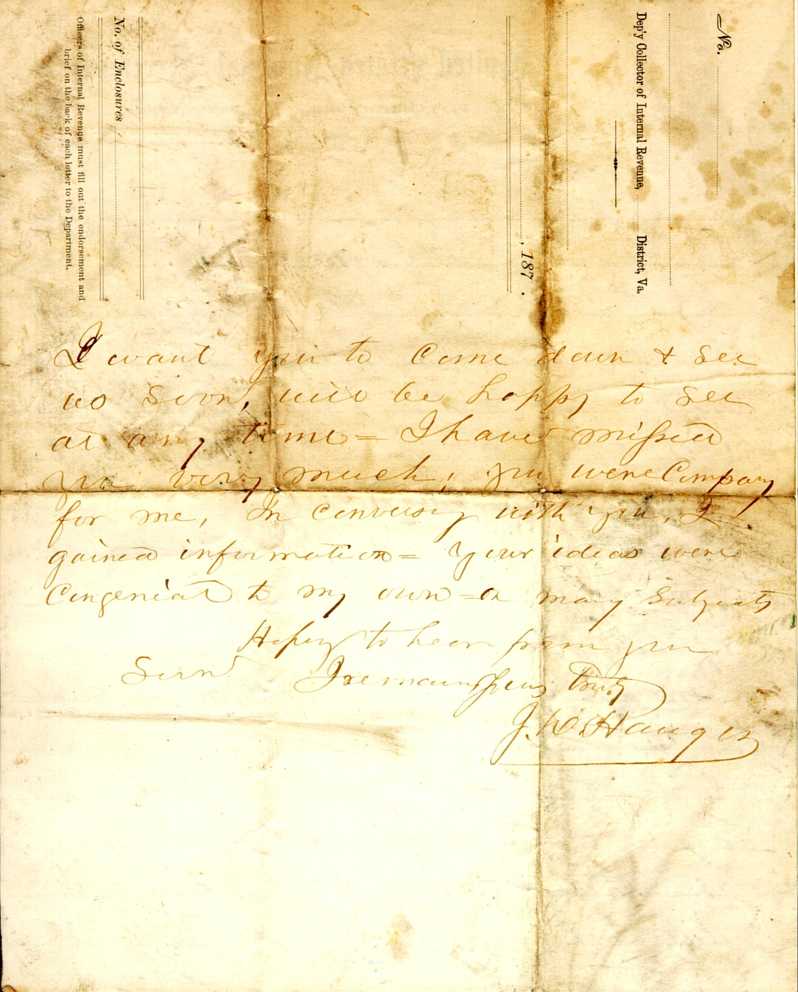 No.
Dep'y Collector of Internal Revenue, District, Va.
, 187 .
No. of Enclosures
Officers of Internal Revenue must fill out the endorsement and
brief on the back of each letter to the Department.
I want you to come down & see
us soon, will be happy to see
at any time = I have missed
you very much, you were Company
for me, In conversing with you, I
gained information = Your ideas were
Congenial to my own = on many Subjects
Hoping to hear from you
Soon I remain yours truly
J. Hanger